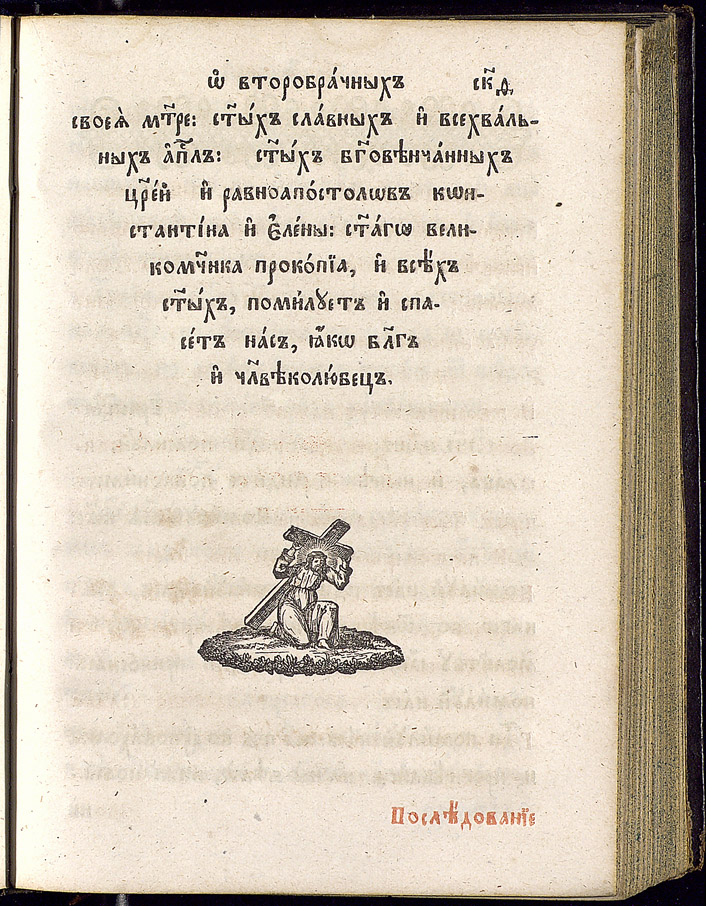 Ѡ҆ второбра́чныхъ скд҃
своеѧ̀ мт҃ре: ст҃ы́хъ сла́вныхъ и҆ всехва́ль-
ныхъ а҆пⷭ҇лъ: ст҃ы́хъ бг҃овѣнча́нныхъ
цр҃е́й и҆ равноапо́столѡвъ кѡн-
станті́на и҆ є҆ле́ны: ст҃а́гѡ вели-
комч҃ника проко́пїа, и҆ всѣ́хъ
ст҃ы́хъ, поми́лꙋетъ и҆ спа-
се́тъ на́съ, ꙗ҆́кѡ бл҃гъ
и҆ чл҃вѣколю́бецъ.
Послѣ́дованїе